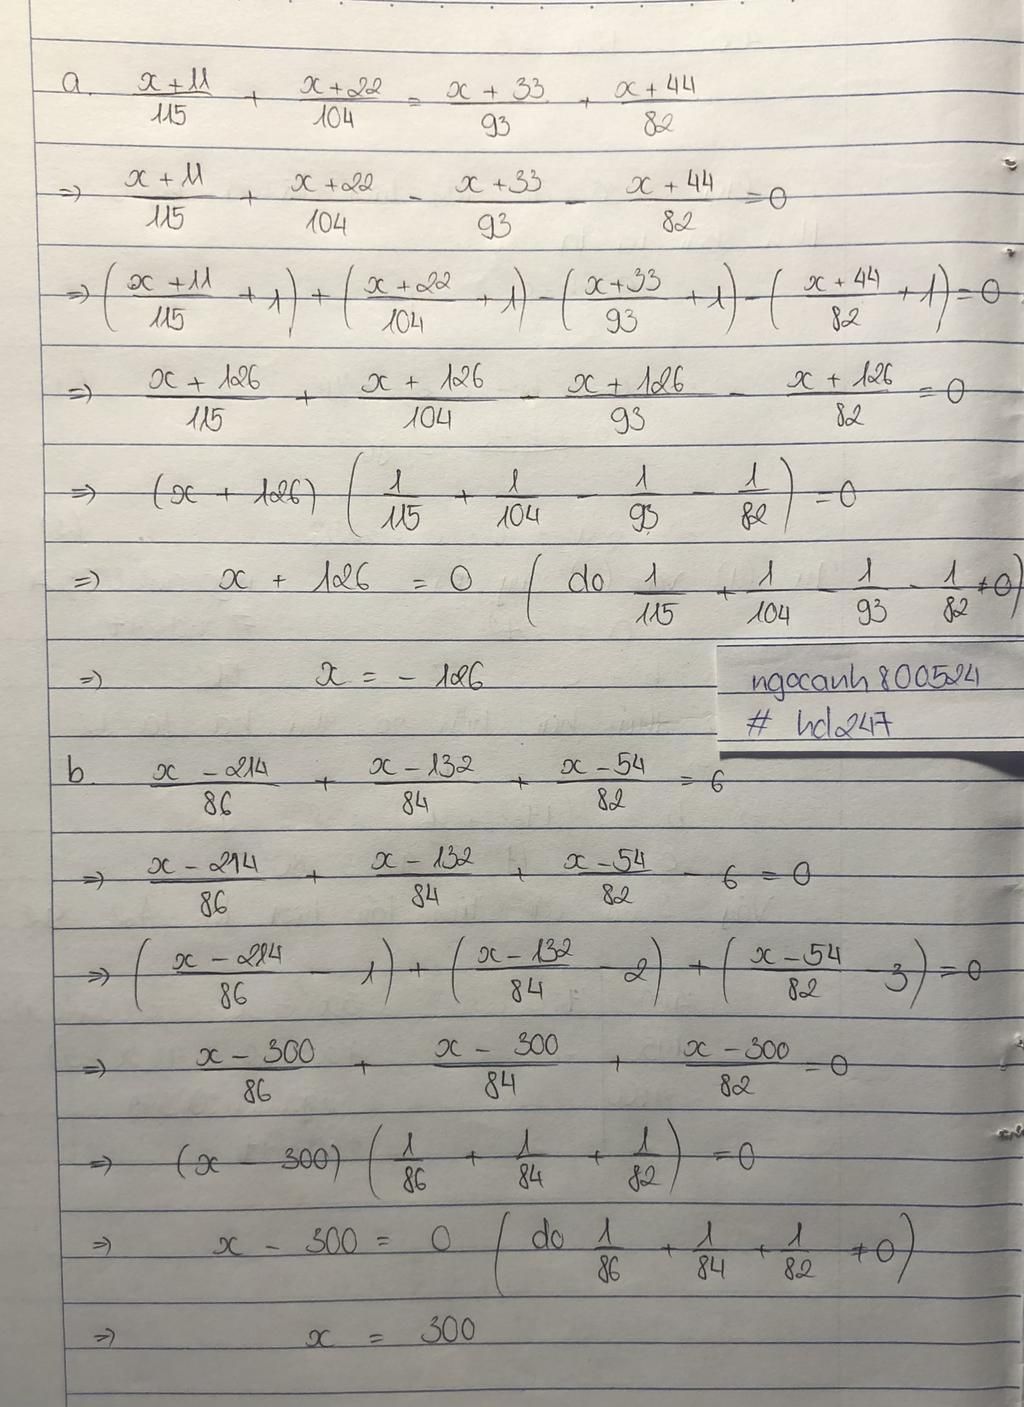 a. (x + 11)/115 + (x + 22)/104 = (x + 33)/93 + (x + 44)/82
=> (x + 11)/115 + (x + 22)/104 - (x + 33)/93 - (x + 44)/82 = 0
=> ((x + 11)/115 + 1) + ((x + 22)/104 + 1) - ((x + 33)/93 + 1) - ((x + 44)/82 + 1) = 0
=> (x + 126)/115 + (x + 126)/104 - (x + 126)/93 - (x + 126)/82 = 0
=> (x + 126) (1/115 + 1/104 - 1/93 - 1/82) = 0
=> x + 126 = 0 (do 1/115 + 1/104 - 1/93 - 1/82 ≠ 0)
=> x = - 126
ngocanh800524
# hd247
b. (x - 214)/86 + (x - 132)/84 + (x - 54)/82 = 6
=> (x - 214)/86 + (x - 132)/84 + (x - 54)/82 - 6 = 0
=> ((x - 214)/86 - 1) + ((x - 132)/84 - 2) + ((x - 54)/82 - 3) = 0
=> (x - 300)/86 + (x - 300)/84 + (x - 300)/82 = 0
=> (x - 300) (1/86 + 1/84 + 1/82) = 0
=> x - 300 = 0 (do 1/86 + 1/84 + 1/82 ≠ 0)
=> x = 300